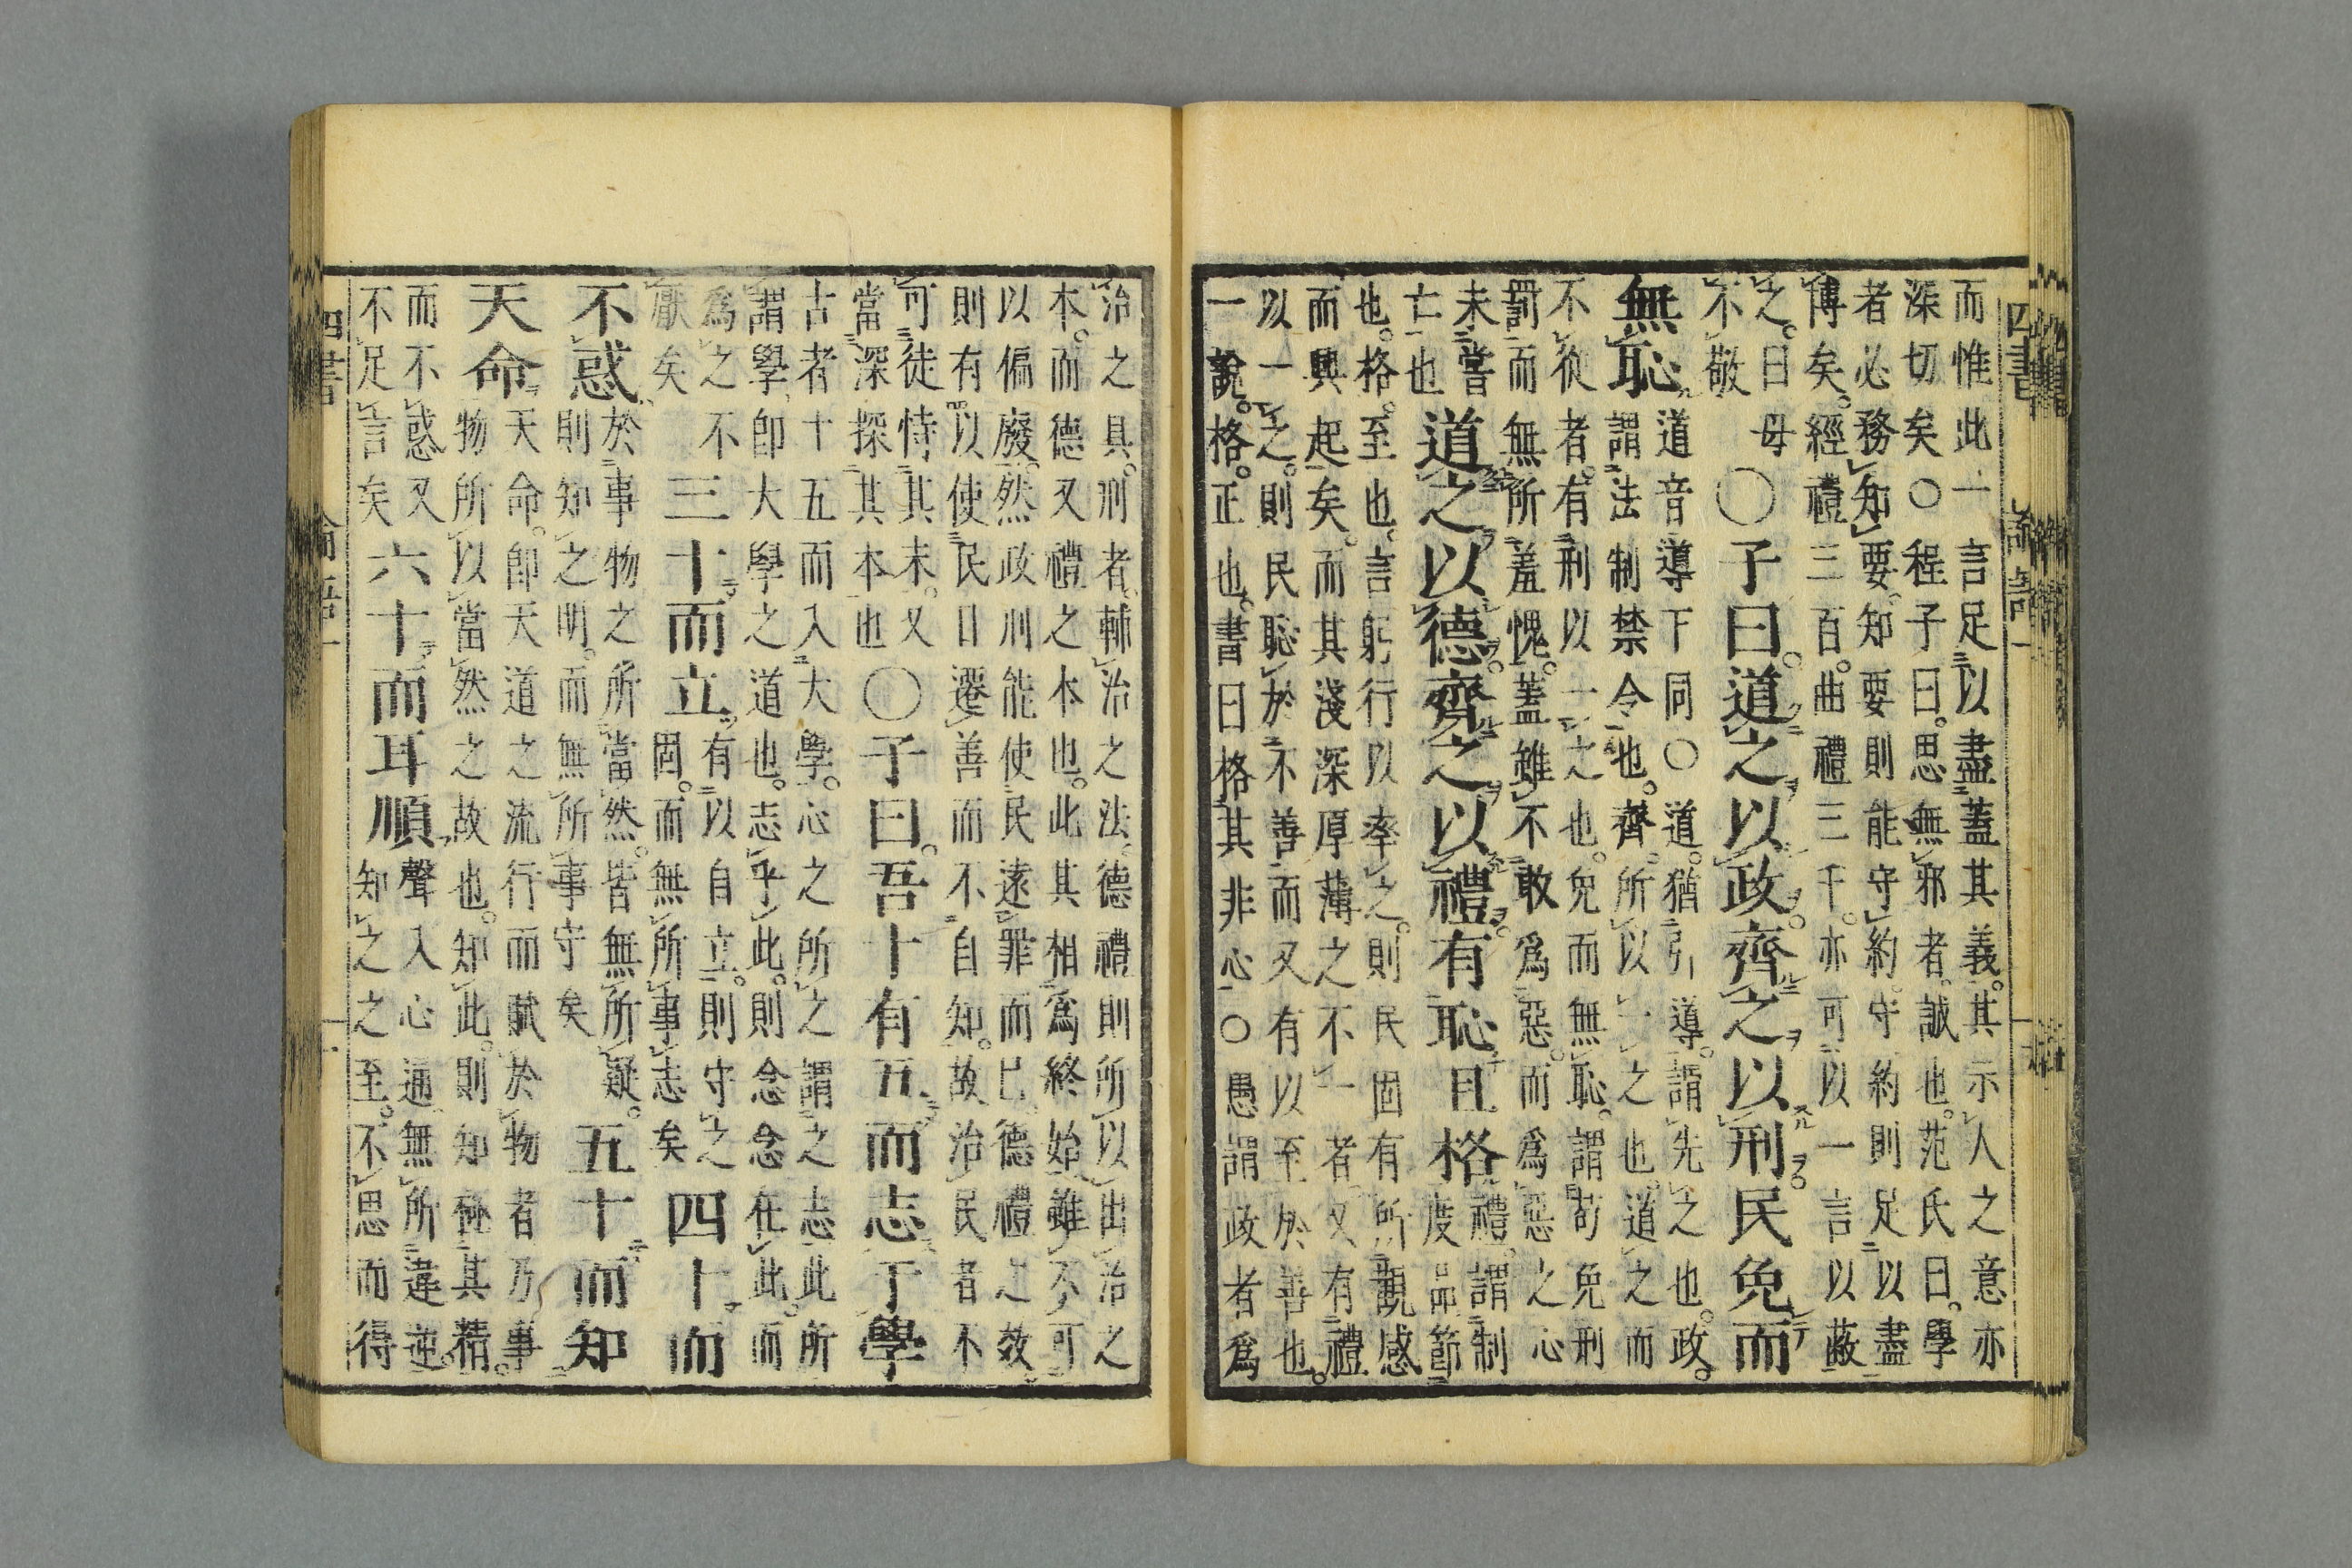 而惟此一言足以盡蓋其義。其示人之意亦
深切矣○程子曰。思無邪者。誠也。范氏曰。學
者必務知要。知要則能守約。守約則足以盡
博矣。經禮三百。曲禮三千。亦可以一言以蔽
之。曰毋
不敬
○子曰。道之以政。齊之以刑。民免而
無恥。
道音導下同○道。猶引導。謂先之也。政。
謂法制禁令也。齊。所以一之也。道之而
不從者。有刑以一之也。免而無恥。謂苟免刑
罰而無所羞愧。蓋雖不敢爲惡。而爲惡之心
未嘗
亡也
道之以德。齊之以禮。有恥且格
禮。謂制
度品節
也。格。至也。言躬行以率之。則民固有所觀感
而興起矣。而其淺深厚薄之不一者。又有禮
以一之。則民恥於不善。而又有以至於善也。
一說。格。正也。書曰格其非心○愚謂政者爲
治之具。刑者。輔治之法。德禮則所以出治之
本。而德又禮之本也。此其相爲終始。雖不可
以偏廢。然政刑能使民遠罪而已。德禮之效。
則有以使民日遷善而不自知。故治民者不
可徒恃其末。又
當深探其本也
○子曰。吾十有五。而志于學
古者十五而入大學。心之所之謂之志此所
謂學。卽大學之道也。志乎此。則念念在此。而
爲之不
厭矣
三十而立。
有以自立。則守之
固。而無所事志矣
四十而
不惑。
於事物之所當然。皆無所疑。
則知之明。而無所事守矣
五十而知
天命
天命。卽天道之流行而賦於物者乃事
物所以當然之故也。知此。則知極其精。
而不惑又
不足言矣
六十而耳順
聲入心通無所違逆。
知之之至。不思而得